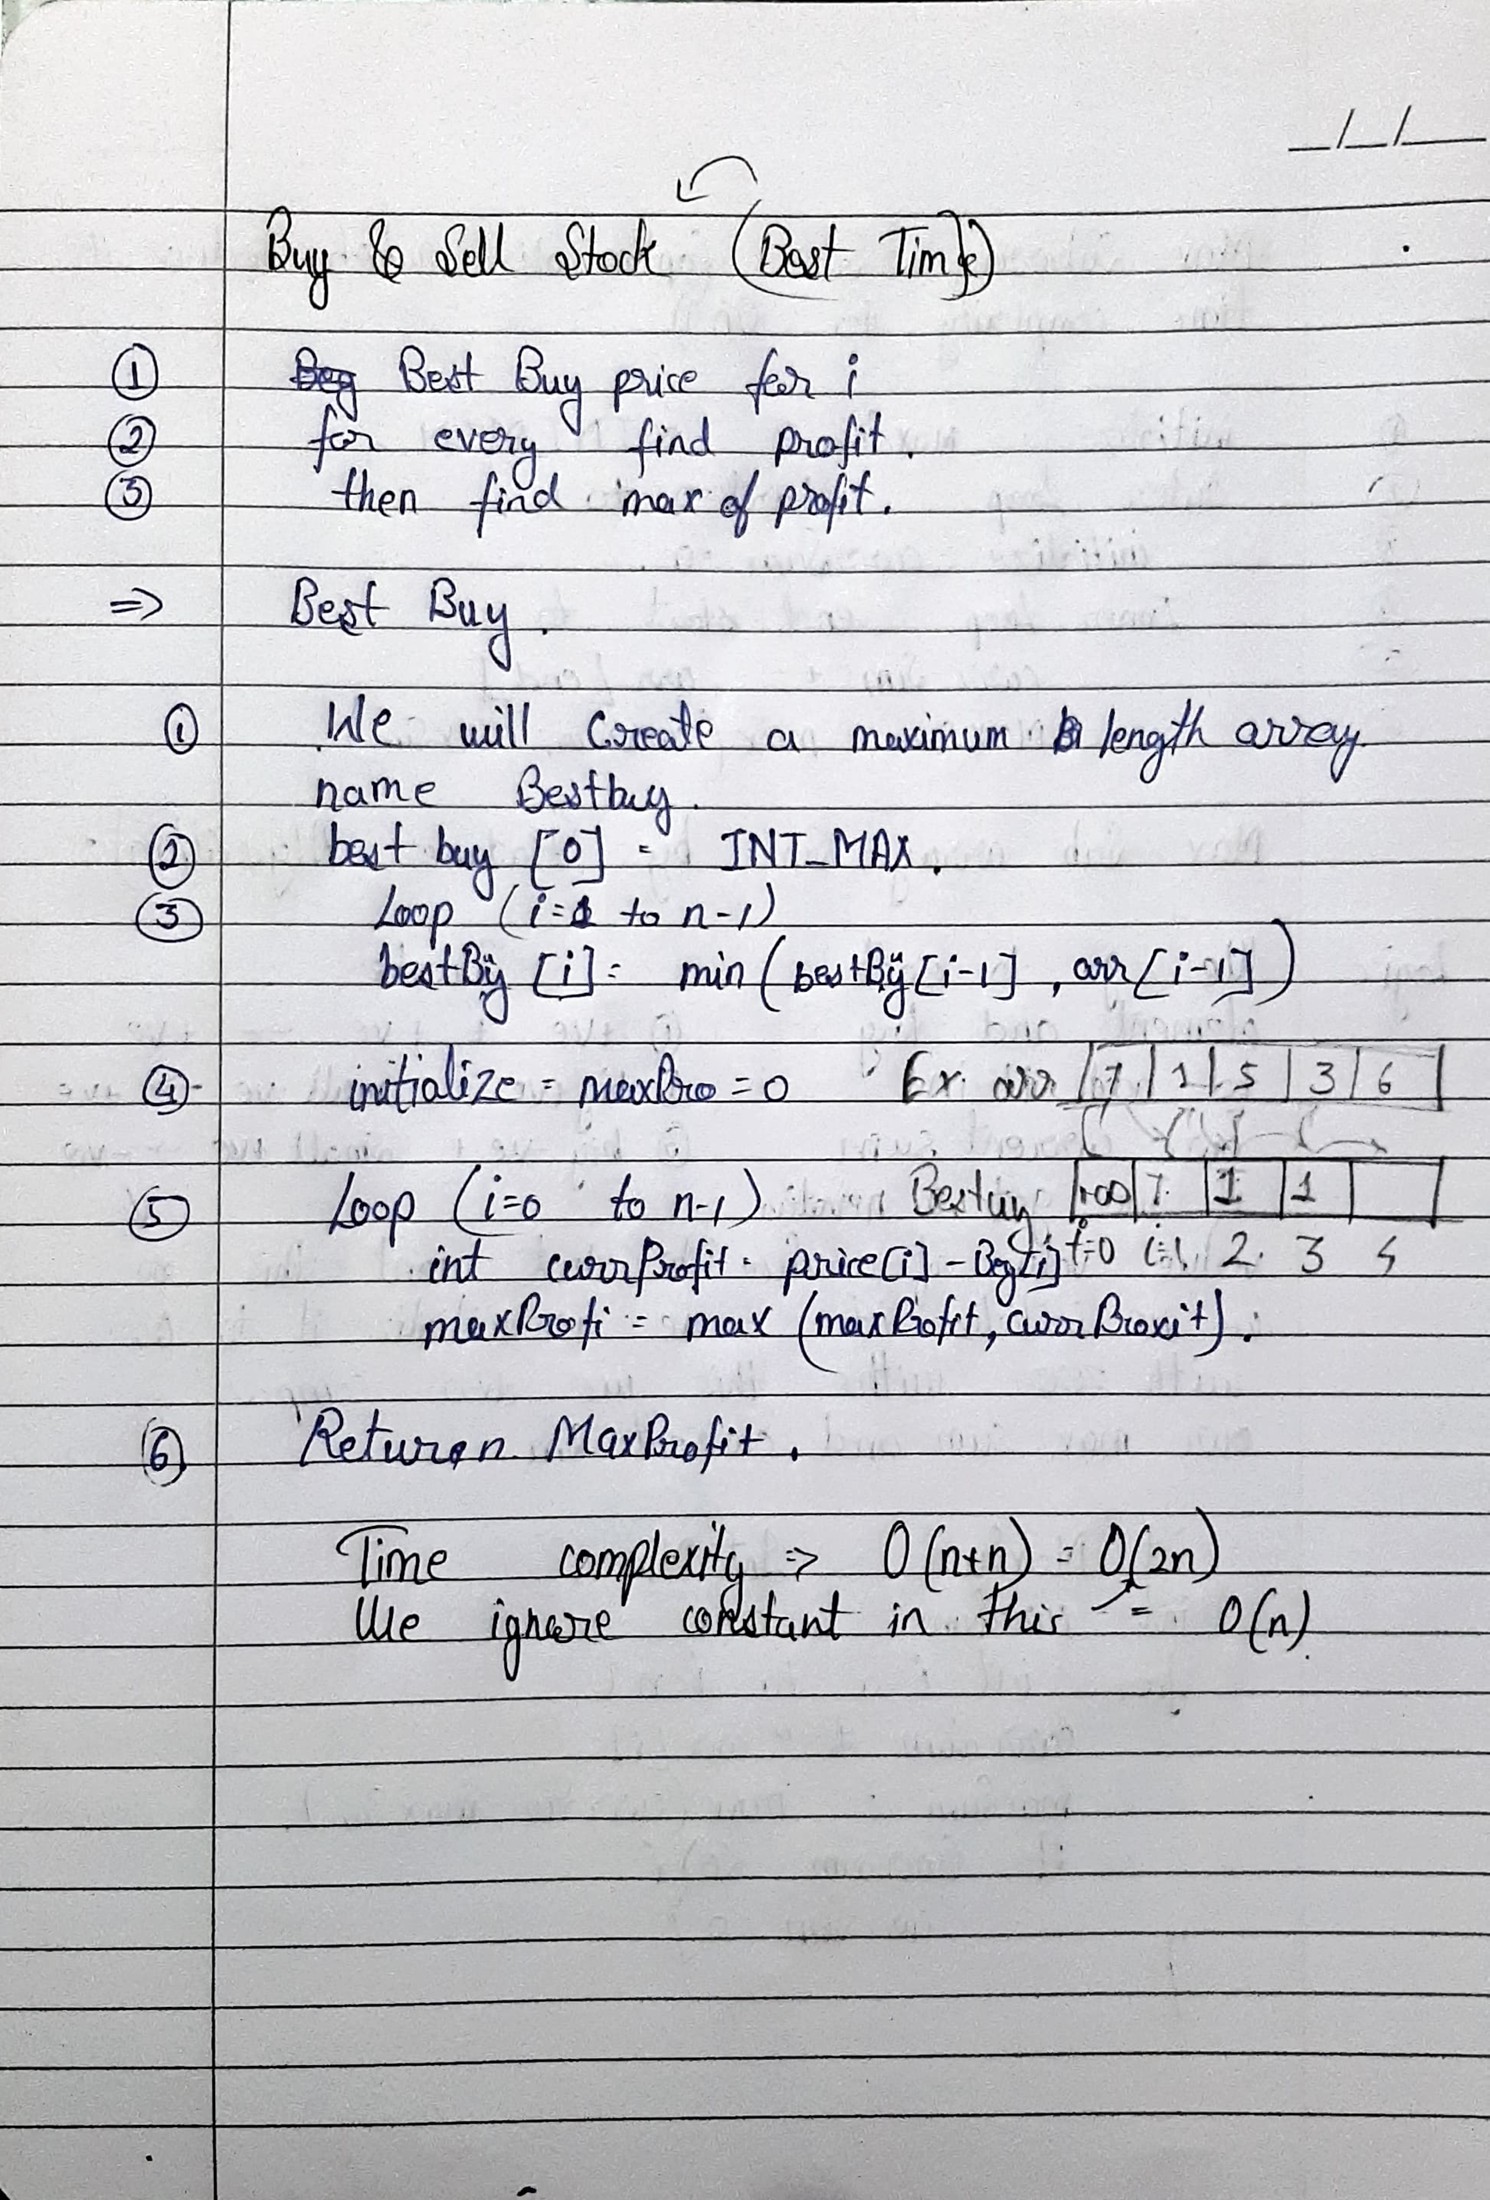 __/__/____
Buy & Sell Stock (Best Time)
① Best Buy price for i
② for every find profit.
③ then find max of profit.
=> Best Buy.
① We will create a maximum length array
name Bestbuy.
② best buy [0] = INT_MAX.
③ Loop (i=1 to n-1)
bestBÿ [i] = min (bestBÿ[i-1], arr[i-1])
④ initialize = maxPro = 0 Ex. arr | 7 | 1 | 5 | 3 | 6 |
⑤ Loop (i=0 to n-1) Bestuy |+∞| 7 | 1 | 1 | |
i=0 i=1 2 3 4
int currProfit = price[i] - [i]
maxProfi = max (maxProfit, currProxit).
⑥ Return MaxProfit.
Time complexity => O(n+n) = O(2n)
We ignore constant in this = O(n).